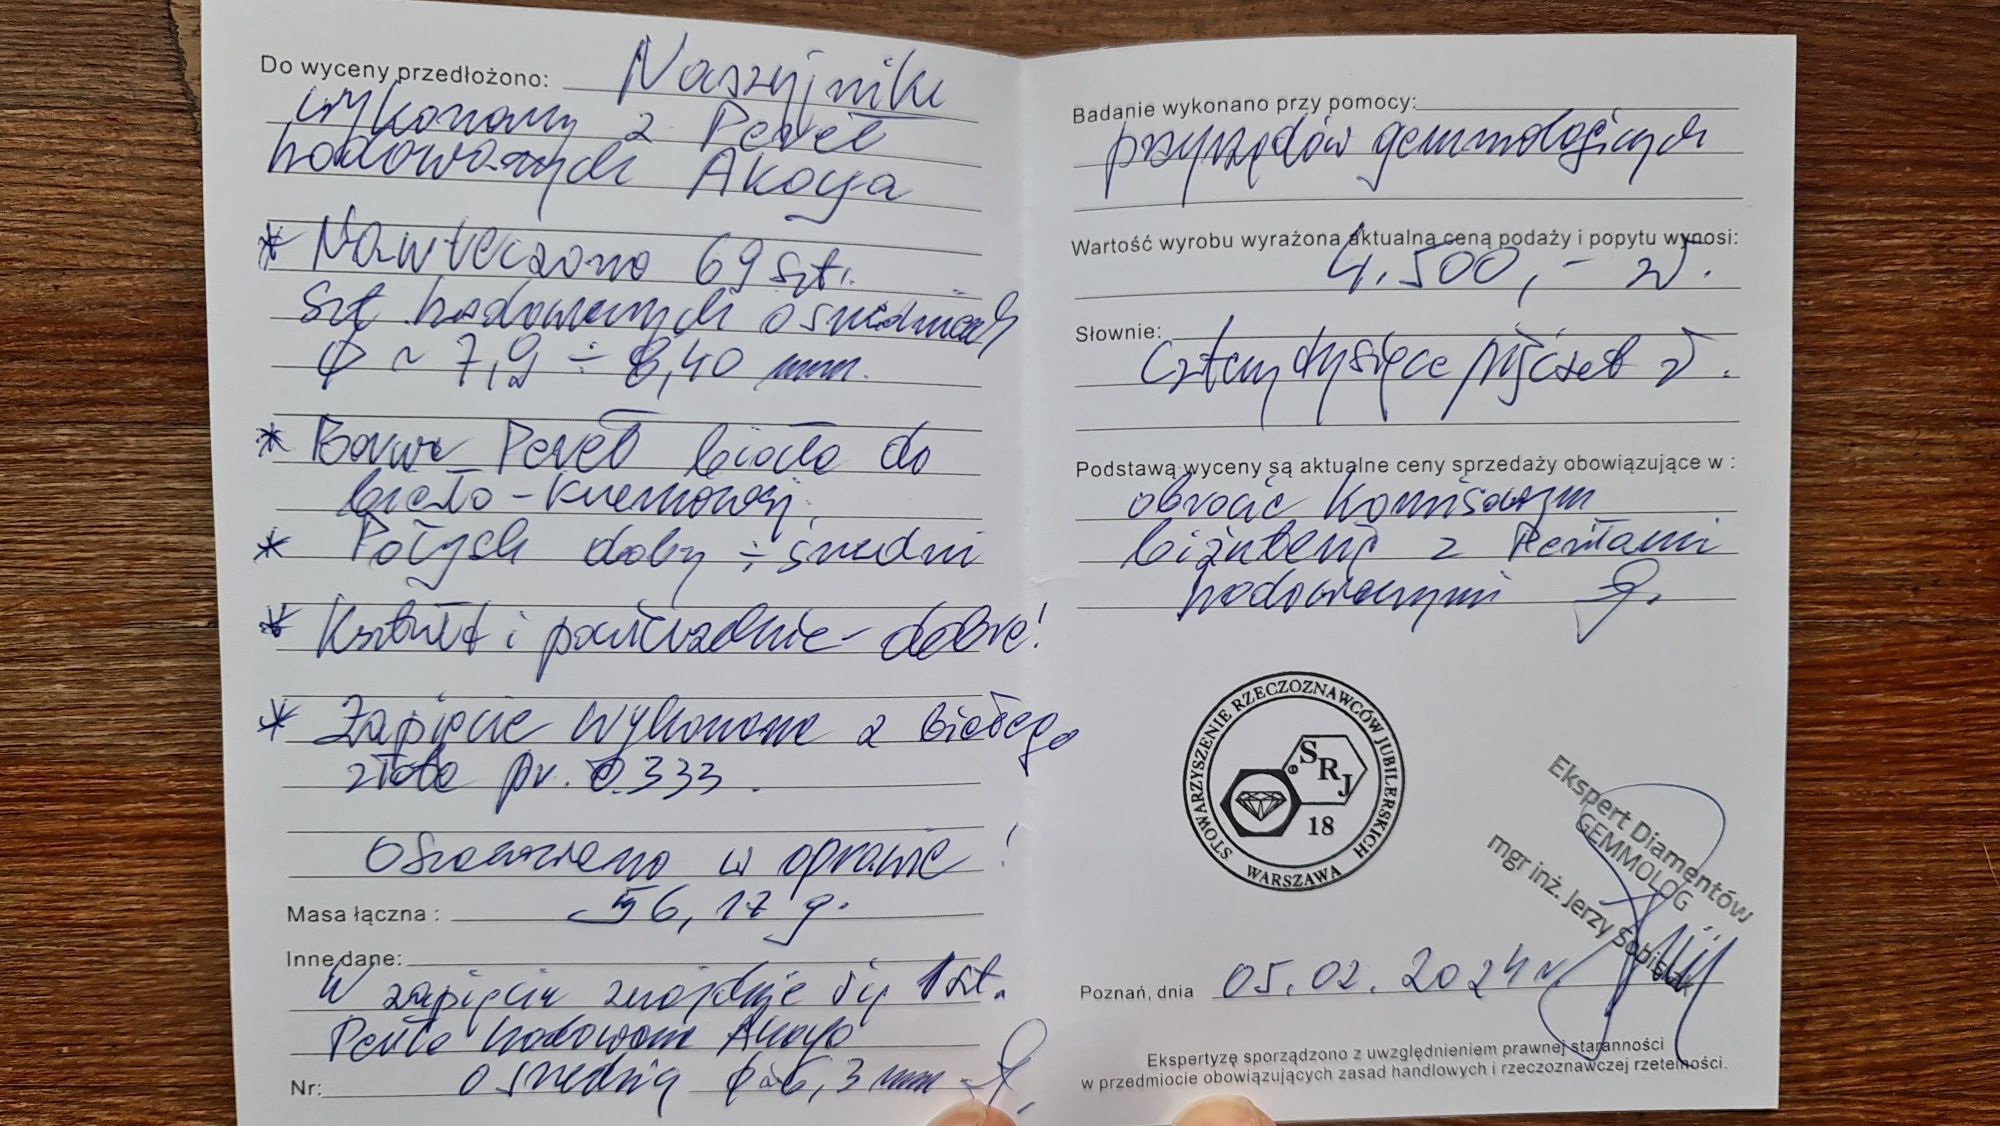 Do wyceny przedłożono: Naszyjnik
wykonany z Pereł
hodowanych Akoya
* Nawleczono 69 szt.
szt. hodowanych o średnicach
φ ~ 7,9 ÷ 8,40 mm.
* Barwa Pereł biała do
biało-kremowej.
* Połysk dobry ÷ średni
* Kształt i powierzchnie - dobre!
* Zapięcie wykonane z białego
złota pr. 0.333.
Oszacowano w oprawie!
Masa łączna: 56,17 g.
Inne dane:
W zapięciu znajduje się 1 szt.
Perła hodowana Akoya
Nr: o średnicy φ 6,3 mm
Badanie wykonano przy pomocy:
przyrządów gemmologicznych
Wartość wyrobu wyrażona aktualną ceną podaży i popytu wynosi:
4.500,- zł.
Słownie:
Cztery tysiące pięćset zł.
Podstawą wyceny są aktualne ceny sprzedaży obowiązujące w:
obrocie komisowym
biżuterią z Perłami
hodowanymi
STOWARZYSZENIE RZECZOZNAWCÓW JUBILERSKICH
SRJ
18
WARSZAWA
Ekspert Diamentów
GEMMOLOG
mgr inż. Jerzy Sobisiak
Poznań, dnia 05.02.2024 r.
Ekspertyzę sporządzono z uwzględnieniem prawnej staranności
w przedmiocie obowiązujących zasad handlowych i rzeczoznawczej rzetelności.